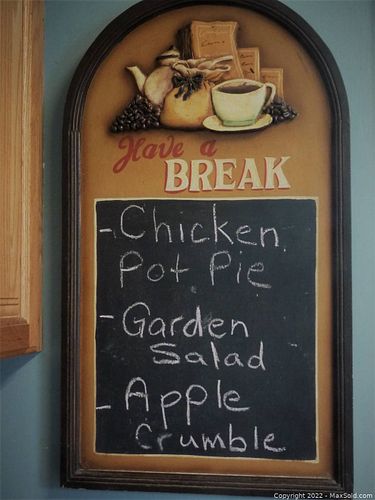 Have a
BREAK
- Chicken
Pot Pie
- Garden
Salad
- Apple
Crumble
Copyright 2022 - MaxSold.com